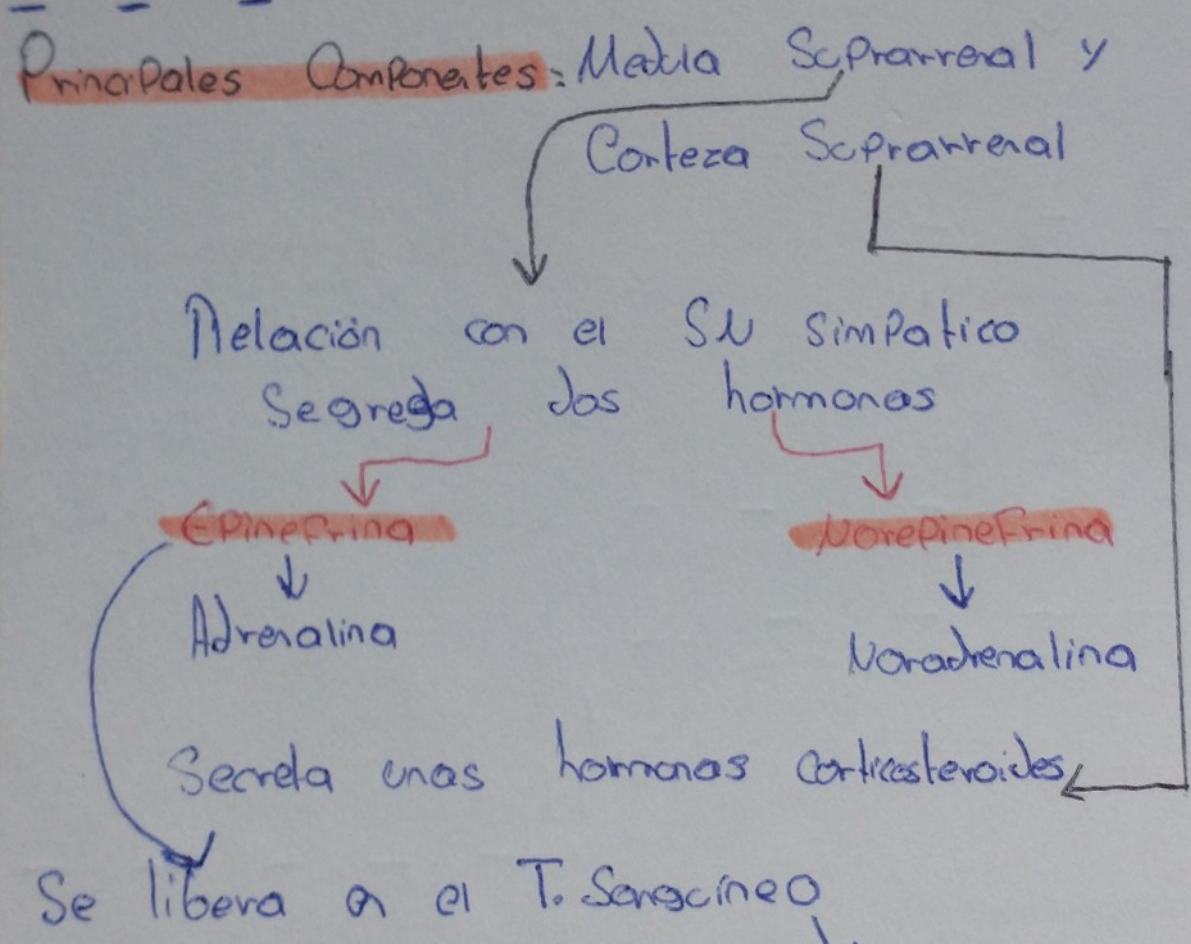 Principales Componentes: Medula Suprarrenal y
Corteza Suprarrenal
Relación con el SN simpatico
Segrega dos hormonas
Epinefrina
Norepinefrina
Adrenalina
Noradrenalina
Secreta unas hormonas corticosteroides
Se libera a el T. Sanguíneo